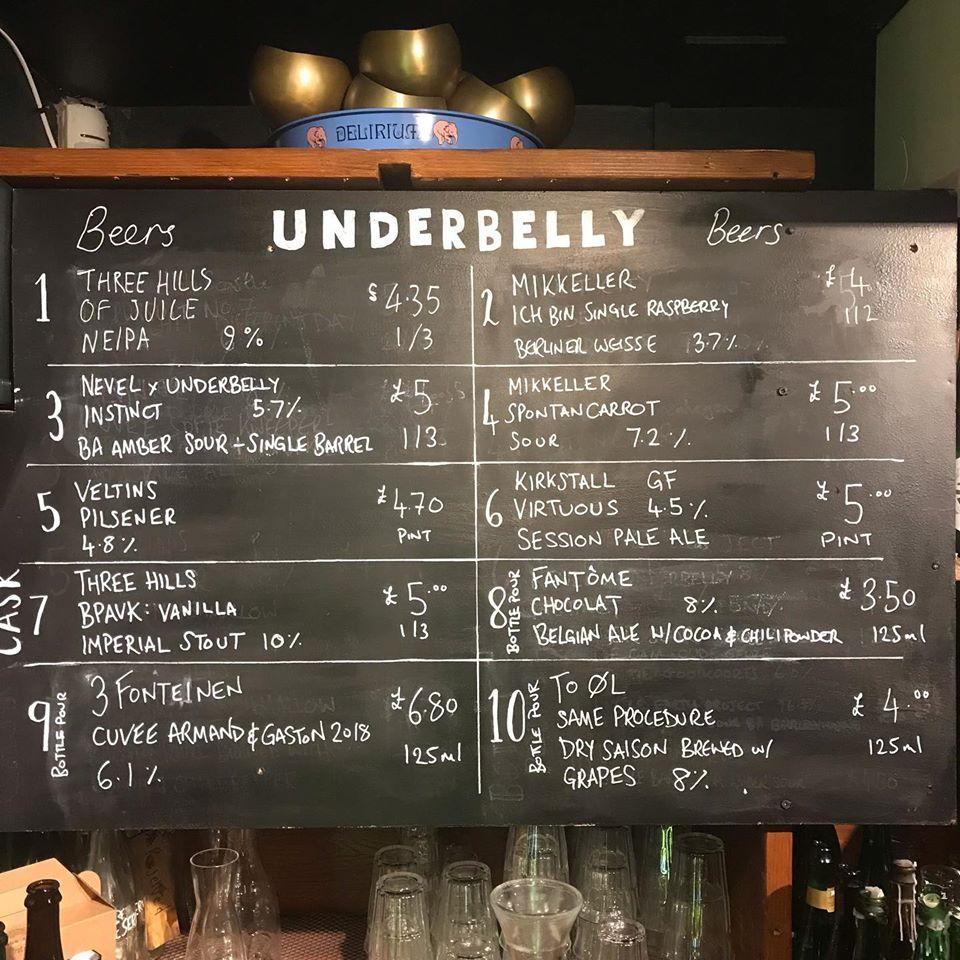 DELIRIUM
Beers UNDERBELLY Beers
1 THREE HILLS
OF JUICE
NEIPA 9%
$4.35
1/3
2 MIKKELLER
ICH BIN SINGLE RASPBERRY
BERLINER WEISSE 3.7%
£4
1/2
3 NEVEL x UNDERBELLY
INSTINCT 5.7%
BA AMBER SOUR - SINGLE BARREL
£5
1/3
4 MIKKELLER
SPONTANCARROT
SOUR 7.2%
£5.00
1/3
5 VELTINS
PILSENER
4.8%
£4.70
PINT
6 KIRKSTALL GF
VIRTUOUS 4.5%
SESSION PALE ALE
£5.00
PINT
CASK
7 THREE HILLS
BPAVK: VANILLA
IMPERIAL STOUT 10%
£5.00
1/3
8 BOTTLE POUR
FANTÔME
CHOCOLAT 8%
BELGIAN ALE W/COCOA & CHILIPOWDER
£3.50
125ml
9 BOTTLE POUR
3 FONTEINEN
CUVEE ARMAND & GASTON 2018
6.1%
£6.80
125ml
10 BOTTLE POUR
TO ØL
SAME PROCEDURE
DRY SAISON BREWED W/
GRAPES 8%
£4.00
125ml